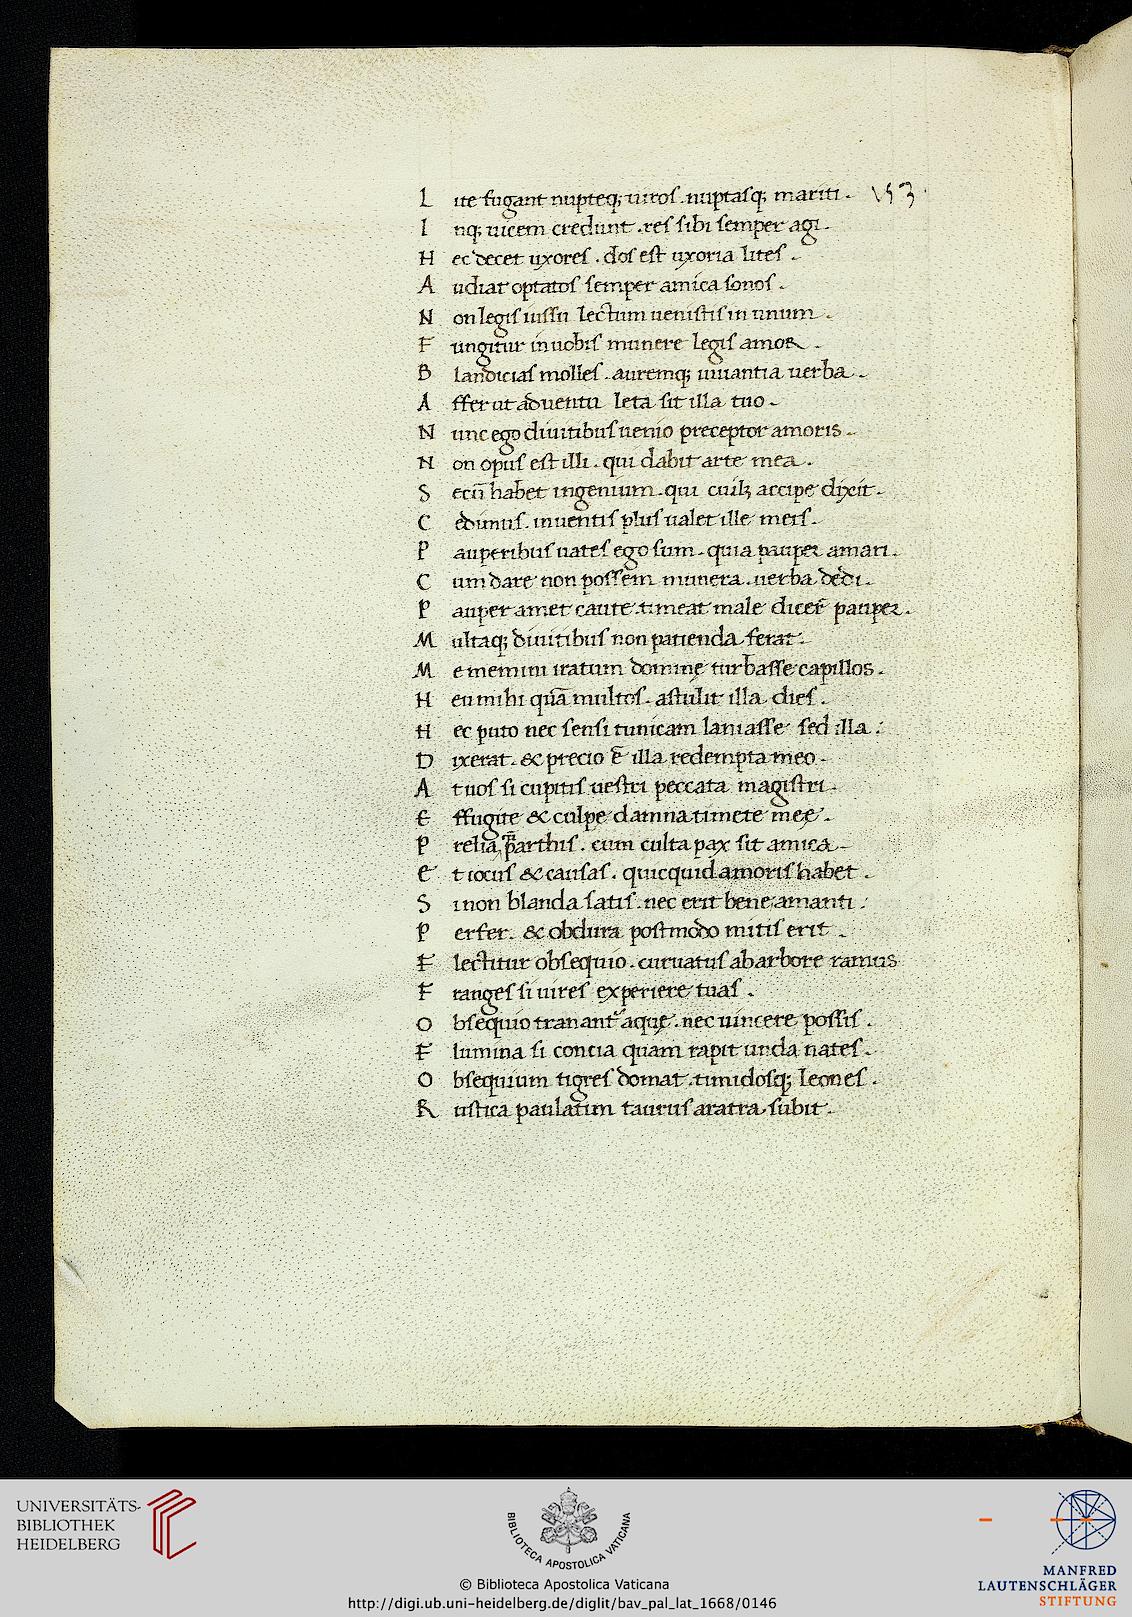 L ite fugant nupteq; uiros . nuptasq; mariti . 153
I nq; uicem credunt . res sibi semper agi .
H ec decet uxores . dos est uxoria lites .
A udiat optatos semper amica sonos .
N on legis iussu lectum uenistis in unum .
F ungitur in uobis munere legis amor .
B landicias molles . auremq; iuuantia uerba .
A ffer ut aduentu leta sit illa tuo .
N unc ego diuitibus uenio preceptor amoris .
N on opus est illi . qui dabit arte mea .
S ecū habet ingenium . qui cuilꝫ accipe dixit .
C edimus . inuentis plus ualet ille meis .
P auperibus uates ego sum . quia pauper amaui .
C um dare non possem munera . uerba dedi .
P auper amet caute . timeat male dicer̄ pauper .
M ultaq; diuitibus non patienda ferat .
M e memini iratum dominę turbasse capillos .
H eu mihi quā multos . astulit illa dies .
H ec puto nec sensi tunicam laniasse sed illa :
D ixerat . & precio ē illa redempta meo .
A t uos si cupitis uestri peccata magistri .
E ffugite & culpe damna timete meę .
P relia parthis . cum culta pax sit amica .
E t iocus & causas . quicquid amoris habet .
S i non blanda satis . nec erit bene amanti :
P erfer . & obdura postmodo mitis erit .
F lectitur obsequio . curuatus ab arbore ramus
F ranges si uires experiere tuas .
O bsequio tranant᷒ aquę . nec uincere possis .
F lumina si contia quam rapit unda nates .
O bsequium tigres domat . timidosq; leones .
R ustica paulatim taurus aratra subit .
UNIVERSITÄTS-
BIBLIOTHEK
HEIDELBERG
BIBLIOTECA APOSTOLICA VATICANA
© Biblioteca Apostolica Vaticana
http://digi.ub.uni-heidelberg.de/diglit/bav_pal_lat_1668/0146
MANFRED
LAUTENSCHLÄGER
STIFTUNG